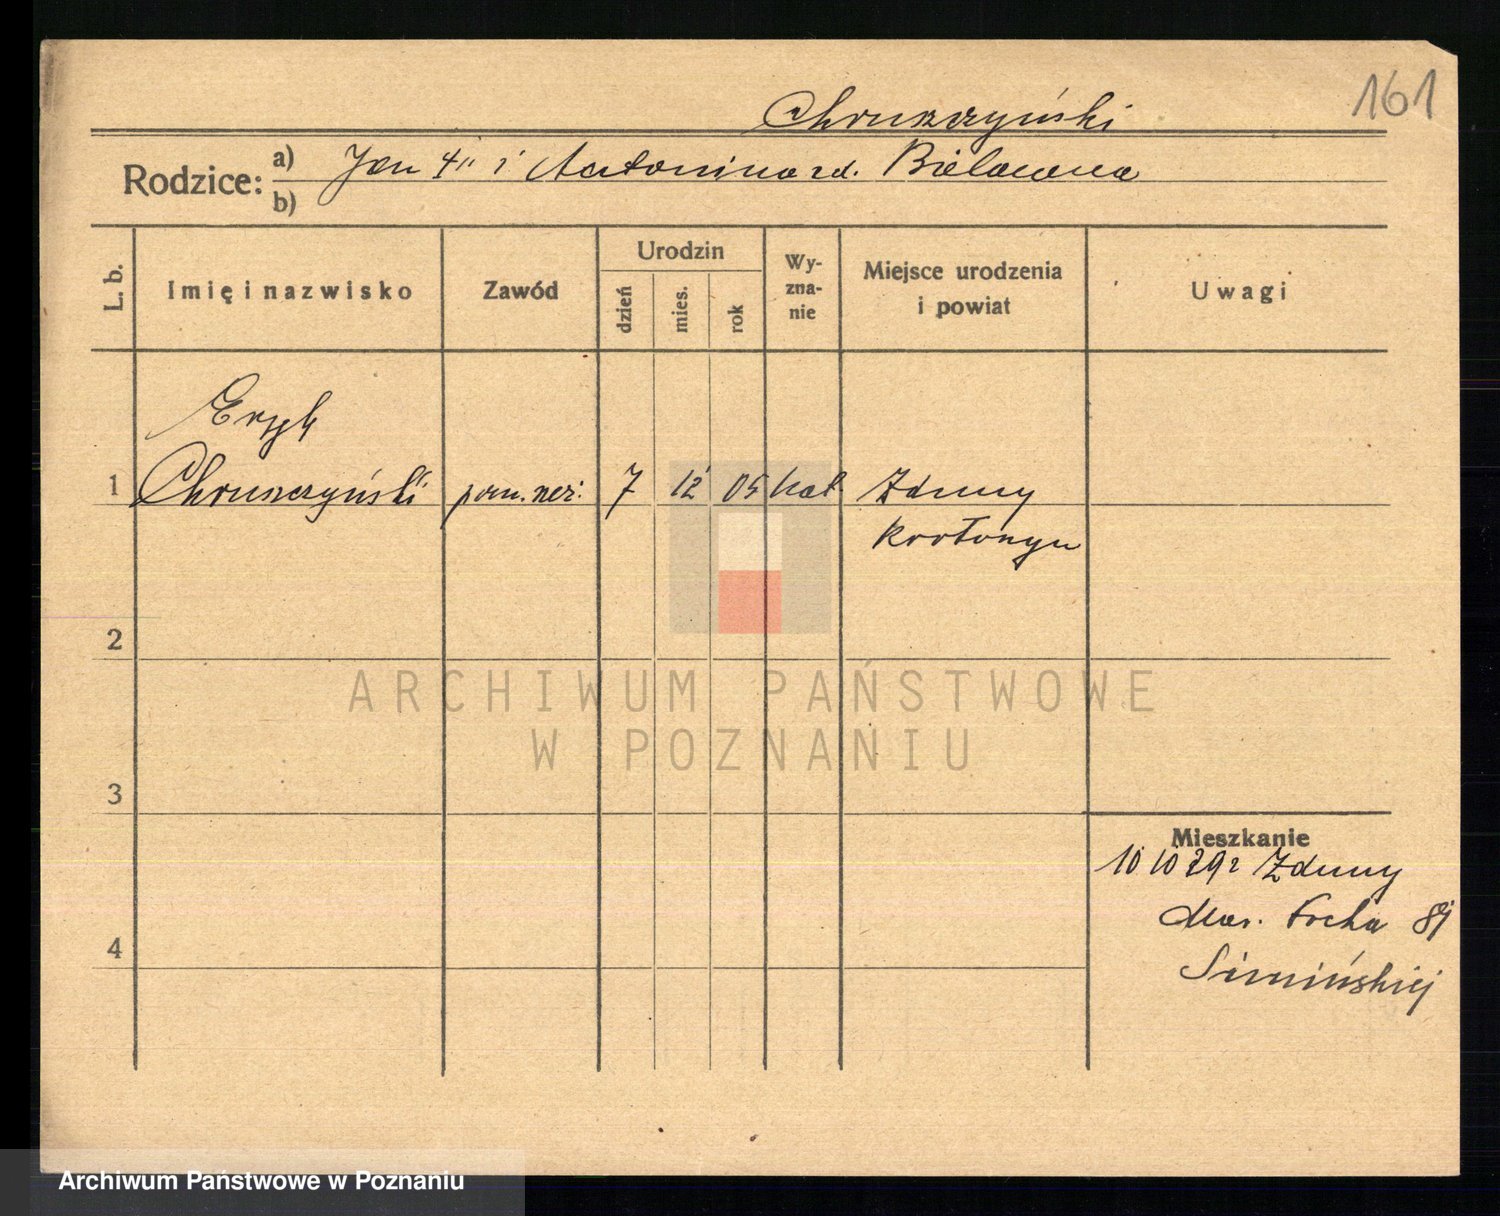 161
Chruszczyński
Rodzice: a) Jan i Antonina zd. Bielawna
b)
L. b. Imię i nazwisko Zawód Urodzin dzień mies. rok Wy-zna-nie Miejsce urodzenia i powiat Uwagi
Eryk
1 Chruszczyński pom. rzeź. 7 12 05 kat. Zduny
Krotoszyn
2
ARCHIWUM PAŃSTWOWE
W POZNANIU
3
Mieszkanie
10 10 29 r Zduny
Mar. Focha
4
Simińskiej
Archiwum Państwowe w Poznaniu